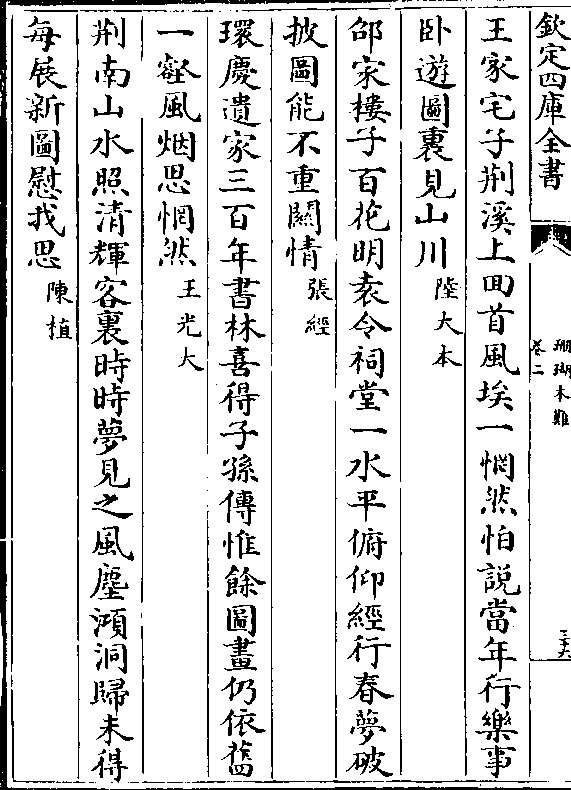 欽定四庫全書
珊瑚木難
卷二
三十六
王家宅子荆溪上回首風埃一惘然怕說當年行樂事
卧遊圖裏見山川陸大本
邵家樓子百花明袁令祠堂一水平俯仰經行春夢破
披圖能不重關情張經
環慶遺家三百年書林喜得子孫傳惟餘圖畫仍依舊
一壑風烟思惘然王光大
荆南山水照清輝客裏時時夢見之風塵澒洞歸未得
每展新圖慰我思陳植